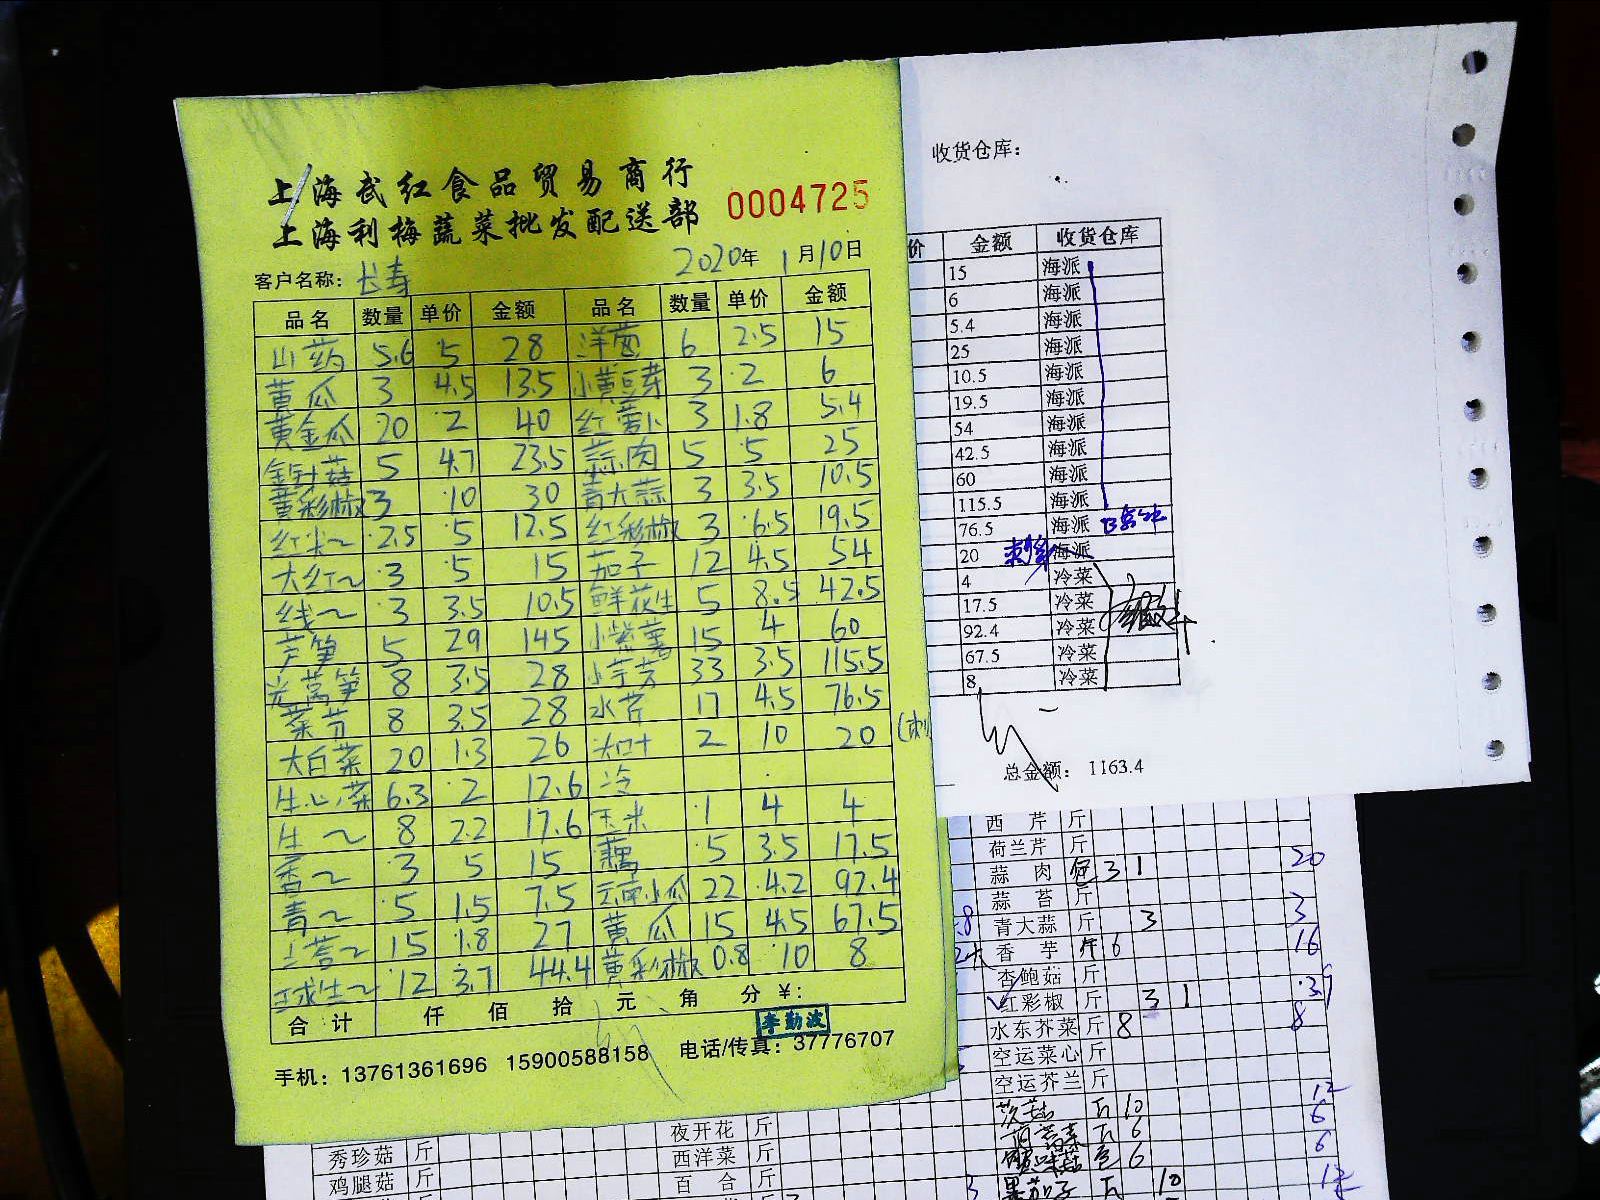 上海武红食品贸易商行
上海利梅蔬菜批发配送部
0004725
2020年 1月10日
客户名称: 长寿
品名 数量 单价 金额 品名 数量 单价 金额
山药 5.6 5 28 洋葱 6 2.5 15
黄瓜 3 4.5 13.5 小黄豆芽 3 2 6
黄金瓜 20 2 40 红萝卜 3 1.8 5.4
金针菇 5 4.7 23.5 蒜肉 5 5 25
黄彩椒 3 10 30 青大蒜 3 3.5 10.5
红尖~ 2.5 5 12.5 红彩椒 3 6.5 19.5
大红~ 3 5 15 茄子 12 4.5 54
线~ 3 3.5 10.5 鲜花生 5 8.5 42.5
芦笋 5 29 145 小紫薯 15 4 60
光莴笋 8 3.5 28 小芋艿 33 3.5 115.5
菜芥 8 3.5 28 水芹 17 4.5 76.5
大白菜 20 1.3 26 2 10 20
生心菜 6.3 2 12.6 冷
生~ 8 2.2 17.6 玉米 1 4 4
香~ 3 5 15 藕 5 3.5 17.5
青~ 5 1.5 7.5 云南小瓜 22 4.2 92.4
15 1.8 27 黄瓜 15 4.5 67.5
球生~ 12 3.7 44.4 黄彩椒 0.8 10 8
合计 仟 佰 拾 元 角 分 ¥:
李勤波
手机: 13761361696 15900588158 电话/传真: 37776707
收货仓库:
价 金额 收货仓库
15 海派
6 海派
5.4 海派
25 海派
10.5 海派
19.5 海派
54 海派
42.5 海派
60 海派
115.5 海派
76.5 海派
20 海派
4 冷菜
17.5 冷菜
92.4 冷菜
67.5 冷菜
8 冷菜
总金额: 1163.4
西芹 斤
荷兰芹 斤
蒜肉 3 1 20
蒜苔 斤
青大蒜 斤 3 3
香芋 斤 6 16
杏鲍菇 斤
红彩椒 斤 3 1
水东芥菜 斤 8 8
空运菜心 斤
空运芥兰 斤
10 12
6 6
6 6
黑茄子 10
夜开花 斤
秀珍菇 斤 西洋菜 斤
鸡腿菇 斤 百合 斤